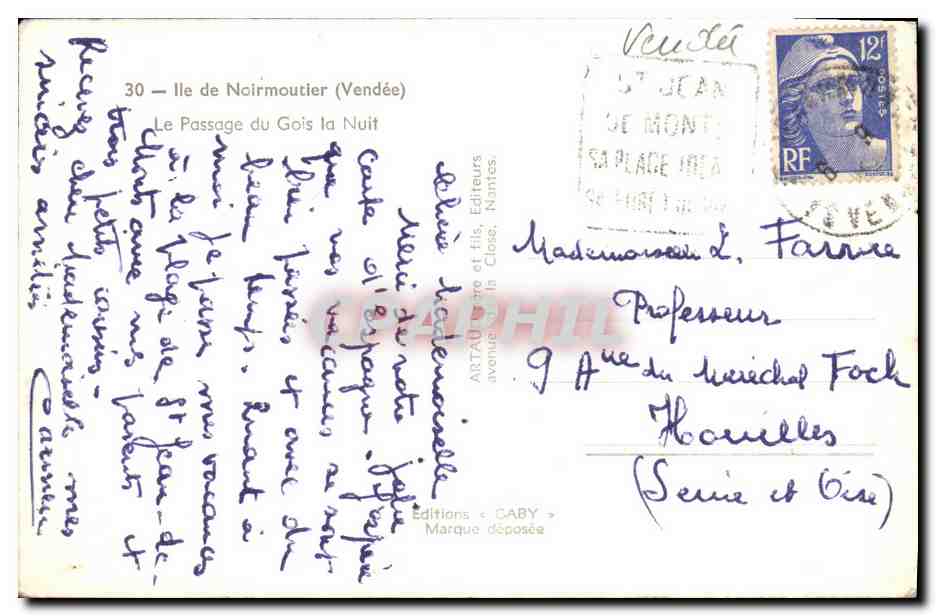 30 — Ile de Noirmoutier (Vendée)
Le Passage du Gois la Nuit
Vendée
ST JEAN
DE MONTS
SA PLAGE IDEA
SA FORET
12F
POSTES
RF
VEN
Chère Mademoiselle
Merci de votre jolie
carte d'Espagne. J'espère
que vos vacances se sont
bien passées et avec du
beau temps. Quant à
moi je passe mes vacances
à la plage de St Jean-de-
Monts avec mes parents et
trois petits cousins.
Recevez chère Mademoiselle mes
amitiés
ARTAUD père et fils, Editeurs
avenue de la Close, Nantes.
Editions « GABY »
Marque déposée
Mademoiselle L.
Professeur
9 Aue du Maréchal Foch
Houilles
(Seine et Oise)
CPAPHIL